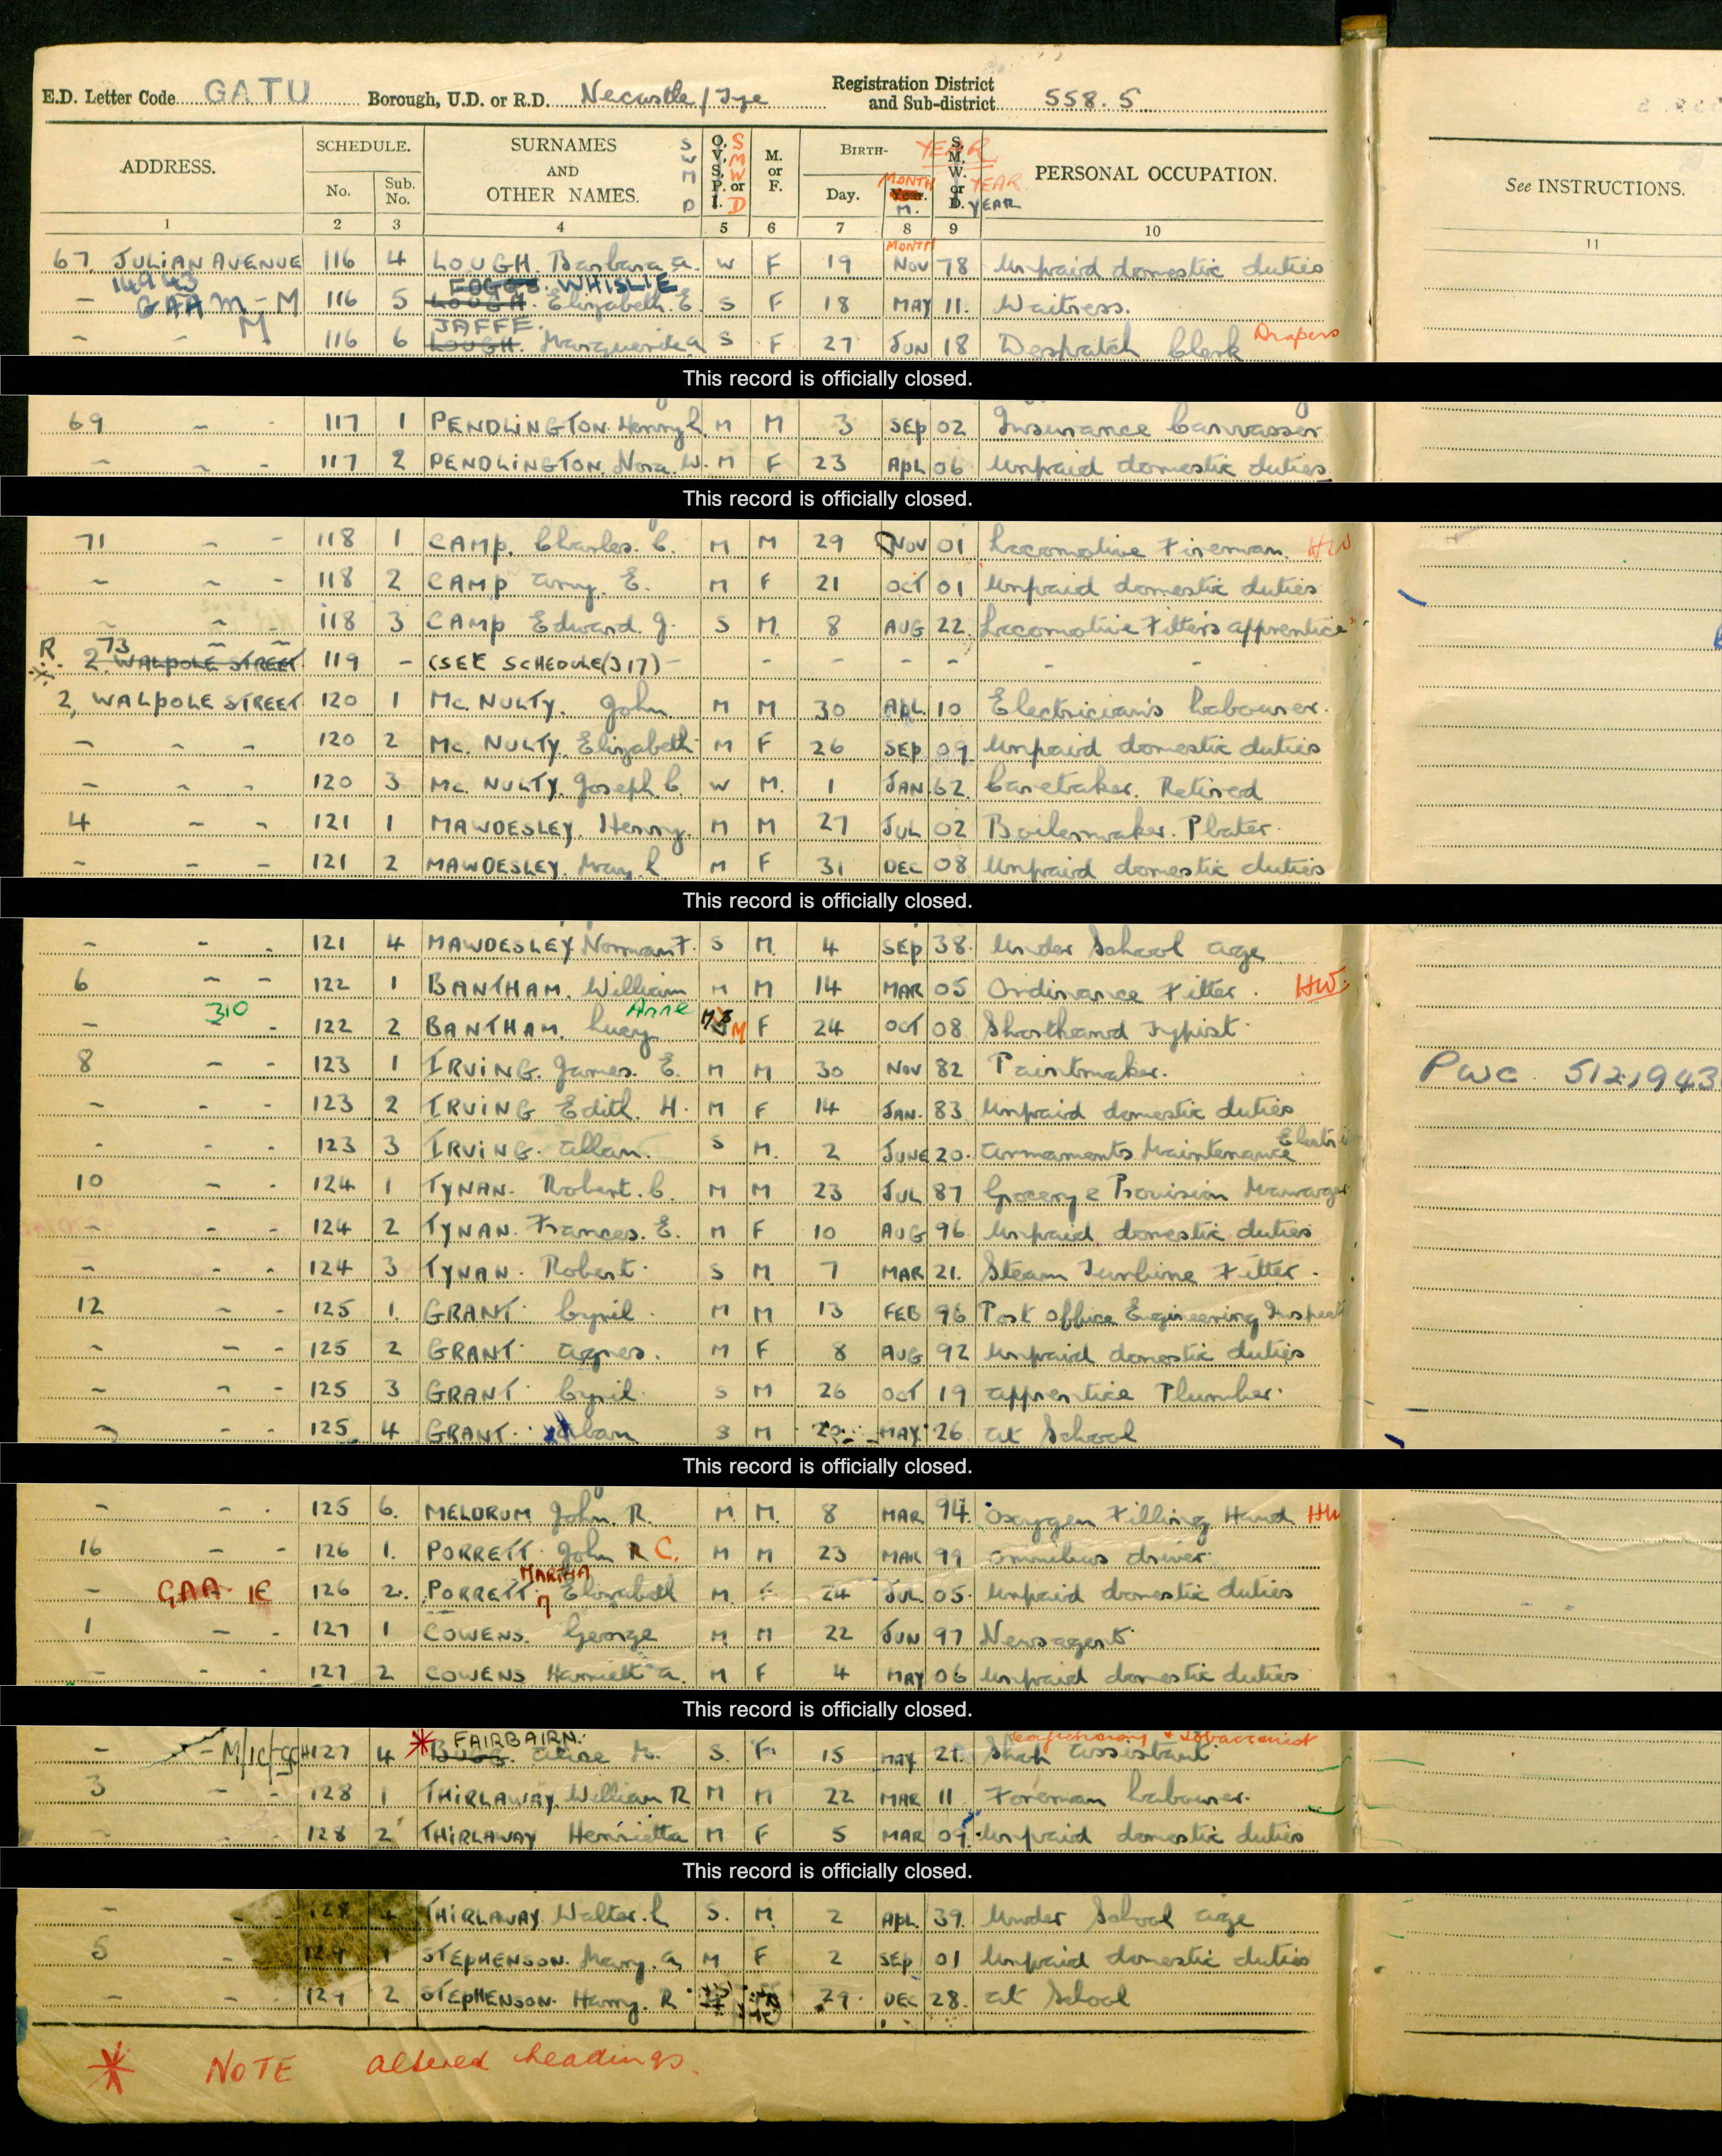 E.D. Letter Code GATU Borough, U.D. or R.D. Newcastle/Tyne Registration District and Sub-district 558.5
ADDRESS. SCHEDULE. No. Sub. No. SURNAMES AND OTHER NAMES. S W M D O, V, S, P, or I. S M W D M. or F. BIRTH- Day. MONTH Year. M. YEAR S, M, W, or D. YEAR YEAR PERSONAL OCCUPATION. See INSTRUCTIONS.
1 2 3 4 5 6 7 8 9 10 11
MONTH
67 JULIAN AVENUE 116 4 LOUGH. Barbara A. W F 19 NOV 78 Unpaid domestic duties
14943 FOGGO. WHISLIE
- GAA M-M 116 5 LOUGH. Elizabeth. E. S F 18 MAY 11. Waitress.
M JAFFE.
- - 116 6 LOUGH. Marguerite A S F 27 JUN 18 Despatch Clerk Drapers
This record is officially closed.
69 - 117 1 PENDLINGTON. Henry L. M M 3 SEP 02 Insurance Canvasser
- - - 117 2 PENDLINGTON. Nora. W. M F 23 APL 06 Unpaid domestic duties
This record is officially closed.
71 - - 118 1 CAMP. Charles. C. M M 29 NOV 01 Locomotive Fireman. HW
- - - 118 2 CAMP Amy. E. M F 21 OCT 01 Unpaid domestic duties
- - - 118 3 CAMP Edward. G. S M. 8 AUG 22. Locomotive Fitter's apprentice
R. 73 - -
2. WALPOLE STREET 119 - (SEE SCHEDULE (317) - - - - - - -
2, WALPOLE STREET 120 1 Mc. NULTY. John M M 30 APL 10 Electrician's Labourer.
- - - 120 2 Mc. NULTY. Elizabeth M F 26 SEP 09 Unpaid domestic duties
- - - 120 3 Mc. NULTY. Joseph. C. W M. 1 JAN 62. Caretaker. Retired
4 - - 121 1 MAWDESLEY. Henry. M M 27 JUL 02 Boilermaker. Plater.
- - - 121 2 MAWDESLEY. May. L M F 31 DEC 08 Unpaid domestic duties
This record is officially closed.
- - - 121 4 MAWDESLEY Norman F. S M. 4 SEP 38. Under School age
6 - - 122 1 BANTHAM. William M M 14 MAR 05 Ordinance Fitter. HW
310 Anne
- - 122 2 BANTHAM. Lucy M S M F 24 OCT 08 Shorthand Typist
8 - - 123 1 IRVING. James. E. M M 30 NOV 82 Paintmaker. PWC 5121943
- - - 123 2 IRVING Edith. H. M F 14 JAN. 83 Unpaid domestic duties
- - - 123 3 IRVING. Allan. S M. 2 JUNE 20. Armaments Maintenance
10 - - 124 1 TYNAN. Robert. C. M M 23 JUL 87 Grocery & Provision Manager
- - - 124 2 TYNAN. Frances. E. M F 10 AUG 96 Unpaid domestic duties
- - - 124 3 TYNAN. Robert. S M 7 MAR 21. Steam Turbine Fitter.
12 - - 125 1. GRANT. Cyril. M M 13 FEB 96 Post Office Engineering Inspect
- - - 125 2 GRANT. Agnes. M F 8 AUG 92 Unpaid domestic duties
- - - 125 3 GRANT. Cyril. S M 26 OCT 19 Apprentice Plumber.
- - - 125 4 GRANT. Alan S M 20 MAY 26 At School
This record is officially closed.
- - - 125 6. MELDRUM John. R. M. M. 8 MAR 94. Oxygen Filling Hand HW
16 - - 126 1. PORRETT. John R C. M M 23 MAR 99 Omnibus driver.
MARTHA
- GAA IE 126 2. PORRETT. Elizabeth M. F 24 JUL 05. Unpaid domestic duties
1 - - 127 1 COWENS. George M M 22 JUN 97 Newsagent
- - - 127 2 COWENS Harriett A. M F 4 MAY 06 Unpaid domestic duties
This record is officially closed.
FAIRBAIRN. Confectionary & Tobacconist
- 127 4 * M. S. F. 15 MAY 21. Shop assistant
3 - - 128 1 THIRLAWAY. William R M M 22 MAR 11 Foreman Labourer.
- - - 128 2 THIRLAWAY Henrietta M F 5 MAR 09. Unpaid domestic duties
This record is officially closed.
- 128 THIRLAWAY. Walter. L S. M. 2 APL. 39. Under School age
5 - 129 1 STEPHENSON. Mary. A M F 2 SEP 01 Unpaid domestic duties
- - 129 2 STEPHENSON. Harry. R 29. DEC 28. At School
* NOTE altered headings.